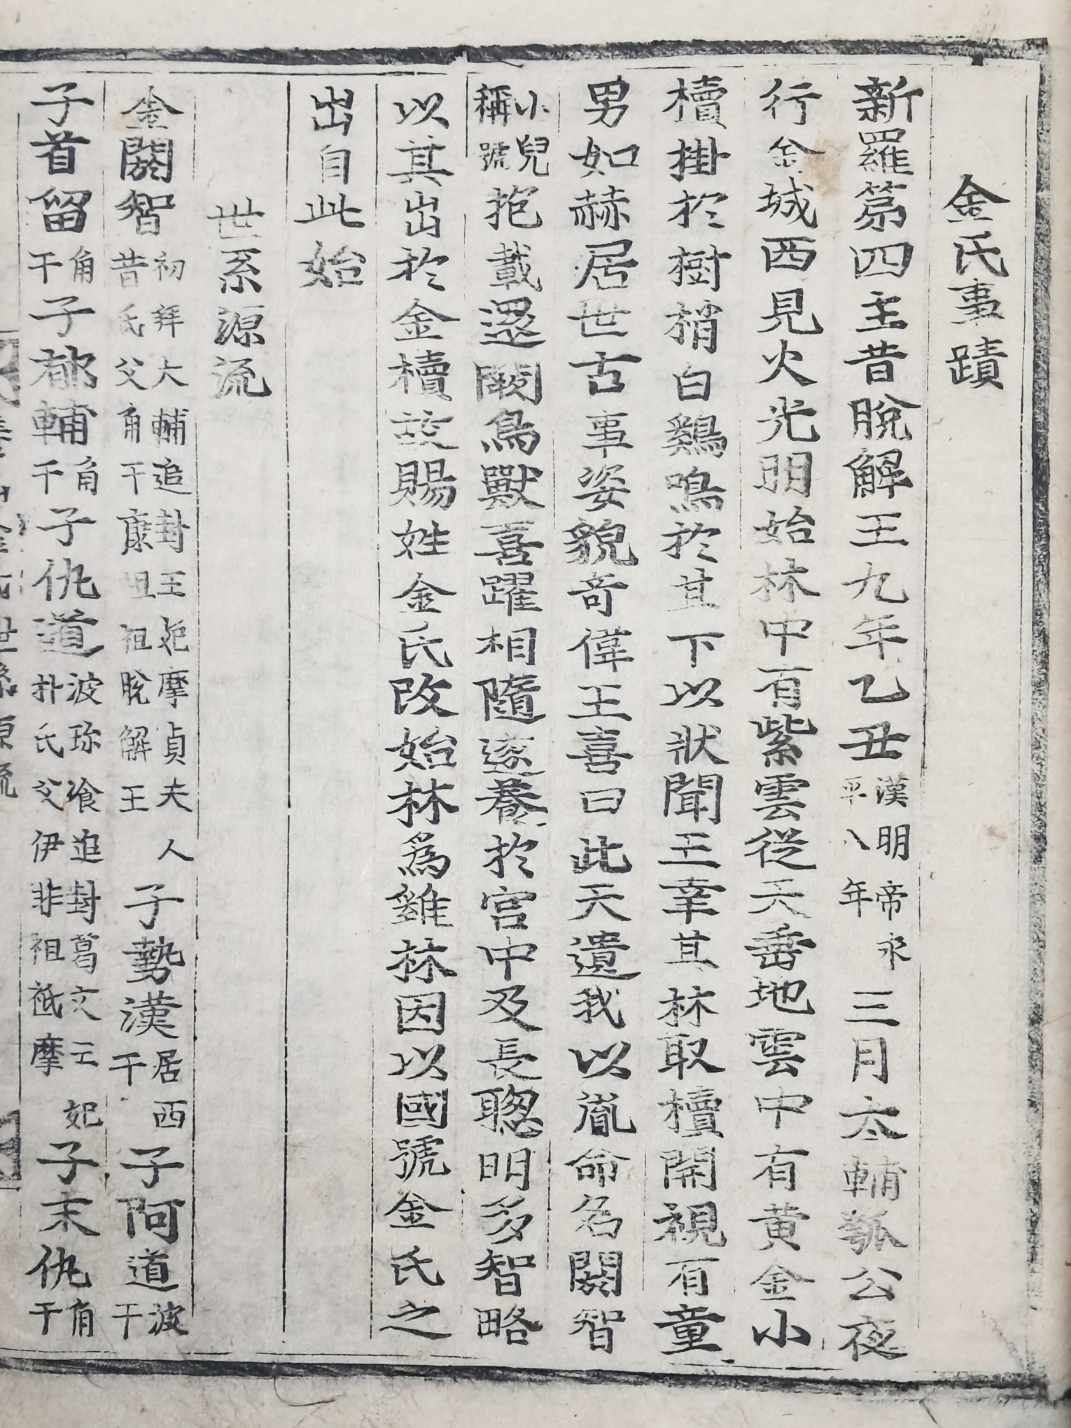 金氏事蹟
新羅第四主昔脫解王九年乙丑漢明帝永平八年三月太輔瓠公夜
行金城西見火光明始林中有紫雲從天垂地雲中有黃金小
櫝掛於樹梢白鷄鳴於其下以狀聞王幸其林取櫝開視有童
男如赫居世古事姿貌奇偉王喜曰此天遺我以胤命名閼智
小兒稱號抱載還闕鳥獸喜躍相隨遂養於宮中及長聰明多智略
以其出於金櫝故賜姓金氏改始林爲雞林因以國號金氏之
出自此始
世系源流
金閼智初拜大輔追封王妃摩貞夫人昔氏父角干康祖祖脫解王子勢漢居西干子阿道波干
子首留角干子郁輔角干子仇道波珍飡追封葛文王妃朴氏父伊非祖祗摩子末仇角干